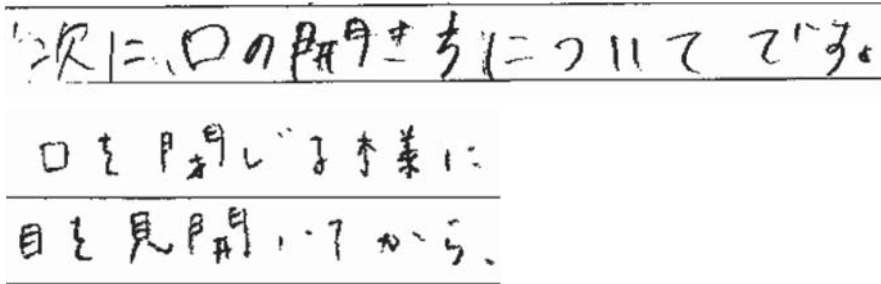 次に、口の開き方についてです。
口を閉じる様に
目を見開いてから、